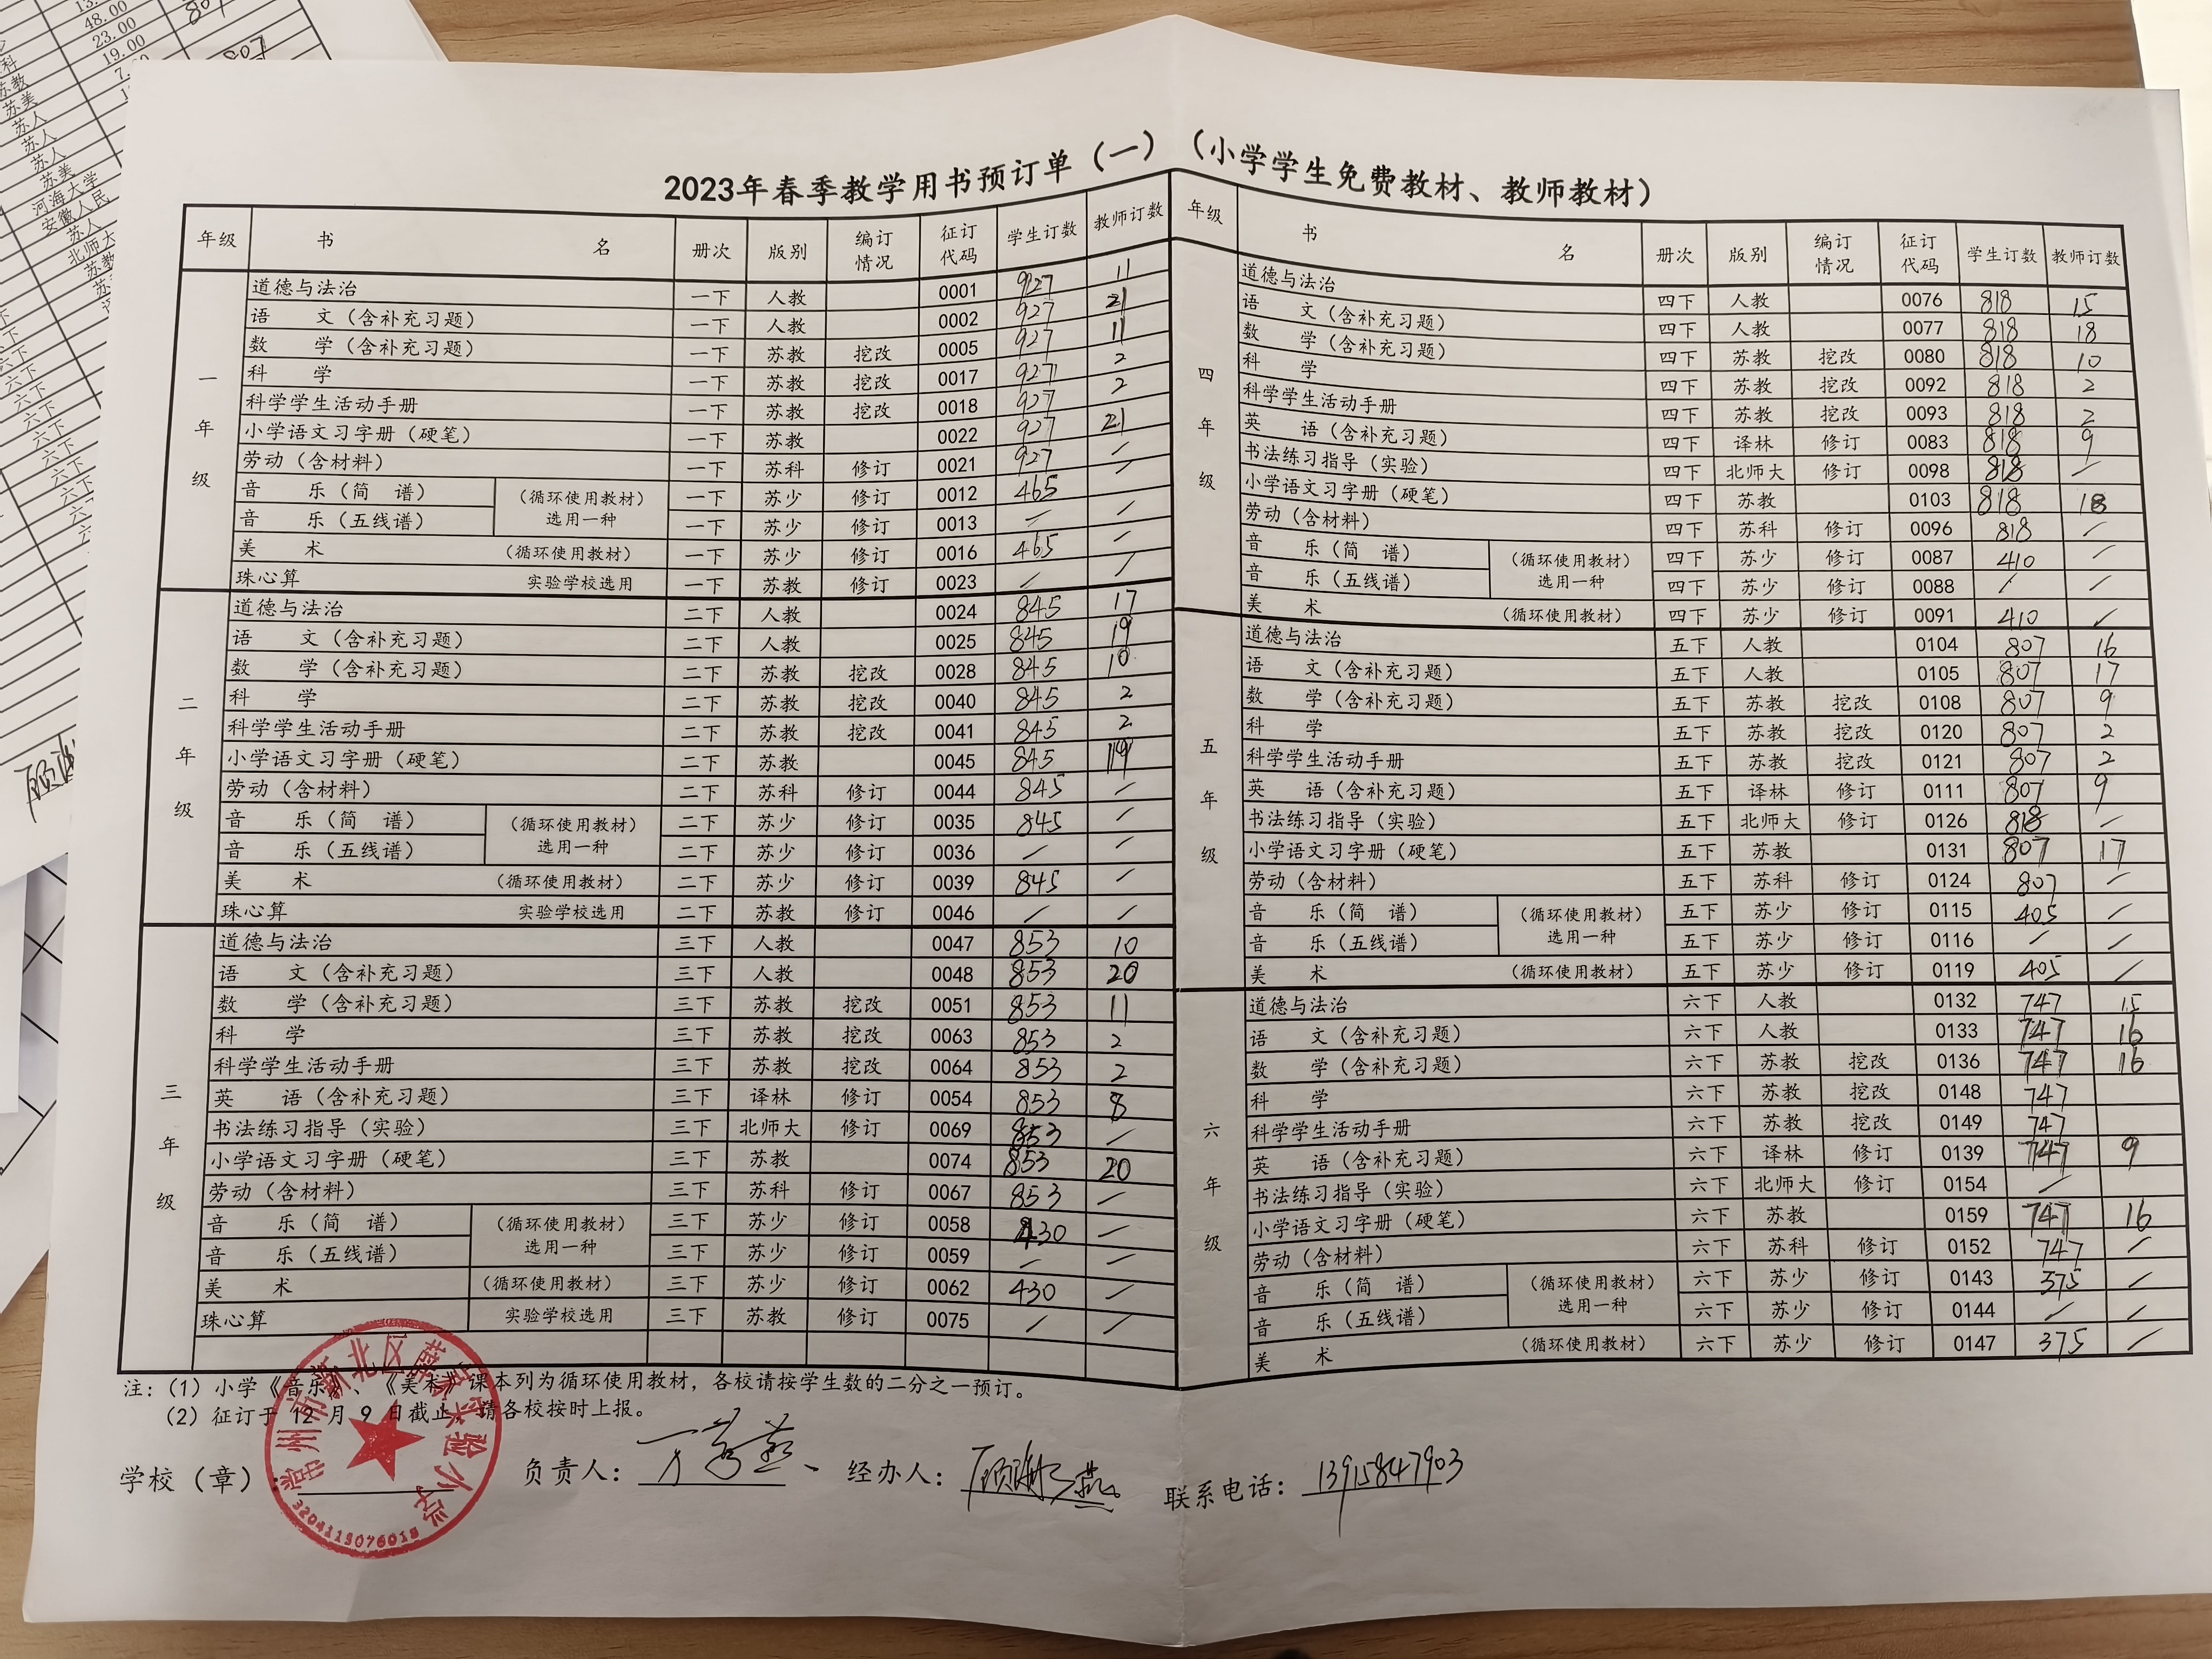 2023年春季教学用书预订单（一）（小学学生免费教材、教师教材）
年级 书 名 册次 版别 编订情况 征订代码 学生订数 教师订数
一年级
道德与法治 一下 人教 0001 927 11
语 文（含补充习题） 一下 人教 0002 927 21
数 学（含补充习题） 一下 苏教 挖改 0005 927 11
科 学 一下 苏教 挖改 0017 927 2
科学学生活动手册 一下 苏教 挖改 0018 927 2
小学语文习字册（硬笔） 一下 苏教 0022 927 21
劳动（含材料） 一下 苏科 修订 0021 927 /
音 乐（简 谱） （循环使用教材）选用一种 一下 苏少 修订 0012 465 /
音 乐（五线谱） 一下 苏少 修订 0013 / /
美 术 （循环使用教材） 一下 苏少 修订 0016 465 /
珠心算 实验学校选用 一下 苏教 修订 0023 / /
二年级
道德与法治 二下 人教 0024 845 17
语 文（含补充习题） 二下 人教 0025 845 19
数 学（含补充习题） 二下 苏教 挖改 0028 845 10
科 学 二下 苏教 挖改 0040 845 2
科学学生活动手册 二下 苏教 挖改 0041 845 2
小学语文习字册（硬笔） 二下 苏教 0045 845 19
劳动（含材料） 二下 苏科 修订 0044 845 /
音 乐（简 谱） （循环使用教材）选用一种 二下 苏少 修订 0035 845 /
音 乐（五线谱） 二下 苏少 修订 0036 / /
美 术 （循环使用教材） 二下 苏少 修订 0039 845 /
珠心算 实验学校选用 二下 苏教 修订 0046 / /
三年级
道德与法治 三下 人教 0047 853 10
语 文（含补充习题） 三下 人教 0048 853 20
数 学（含补充习题） 三下 苏教 挖改 0051 853 11
科 学 三下 苏教 挖改 0063 853 2
科学学生活动手册 三下 苏教 挖改 0064 853 2
英 语（含补充习题） 三下 译林 修订 0054 853 8
书法练习指导（实验） 三下 北师大 修订 0069 853 /
小学语文习字册（硬笔） 三下 苏教 0074 853 20
劳动（含材料） 三下 苏科 修订 0067 853 /
音 乐（简 谱） （循环使用教材）选用一种 三下 苏少 修订 0058 430 /
音 乐（五线谱） 三下 苏少 修订 0059 / /
美 术 （循环使用教材） 三下 苏少 修订 0062 430 /
珠心算 实验学校选用 三下 苏教 修订 0075 / /
年级 书 名 册次 版别 编订情况 征订代码 学生订数 教师订数
四年级
道德与法治 四下 人教 0076 818 15
语 文（含补充习题） 四下 人教 0077 818 18
数 学（含补充习题） 四下 苏教 挖改 0080 818 10
科 学 四下 苏教 挖改 0092 818 2
科学学生活动手册 四下 苏教 挖改 0093 818 2
英 语（含补充习题） 四下 译林 修订 0083 818 9
书法练习指导（实验） 四下 北师大 修订 0098 818 /
小学语文习字册（硬笔） 四下 苏教 0103 818 18
劳动（含材料） 四下 苏科 修订 0096 818 /
音 乐（简 谱） （循环使用教材）选用一种 四下 苏少 修订 0087 410 /
音 乐（五线谱） 四下 苏少 修订 0088 / /
美 术 （循环使用教材） 四下 苏少 修订 0091 410 /
五年级
道德与法治 五下 人教 0104 807 16
语 文（含补充习题） 五下 人教 0105 807 17
数 学（含补充习题） 五下 苏教 挖改 0108 807 9
科 学 五下 苏教 挖改 0120 807 2
科学学生活动手册 五下 苏教 挖改 0121 807 2
英 语（含补充习题） 五下 译林 修订 0111 807 9
书法练习指导（实验） 五下 北师大 修订 0126 818 /
小学语文习字册（硬笔） 五下 苏教 0131 807 17
劳动（含材料） 五下 苏科 修订 0124 807 /
音 乐（简 谱） （循环使用教材）选用一种 五下 苏少 修订 0115 405 /
音 乐（五线谱） 五下 苏少 修订 0116 / /
美 术 （循环使用教材） 五下 苏少 修订 0119 405 /
六年级
道德与法治 六下 人教 0132 747 15
语 文（含补充习题） 六下 人教 0133 747 16
数 学（含补充习题） 六下 苏教 挖改 0136 747 16
科 学 六下 苏教 挖改 0148 747
科学学生活动手册 六下 苏教 挖改 0149 747
英 语（含补充习题） 六下 译林 修订 0139 747 9
书法练习指导（实验） 六下 北师大 修订 0154 /
小学语文习字册（硬笔） 六下 苏教 0159 747 16
劳动（含材料） 六下 苏科 修订 0152 747 /
音 乐（简 谱） （循环使用教材）选用一种 六下 苏少 修订 0143 375 /
音 乐（五线谱） 六下 苏少 修订 0144 / /
美 术 （循环使用教材） 六下 苏少 修订 0147 375 /
注：（1）小学《音乐》、《美术》课本列为循环使用教材，各校请按学生数的二分之一预订。
（2）征订于 12 月 9 日截止，请各校按时上报。
学校（章）： 负责人： 经办人： 联系电话：13915847903
常州市新北区薛家实验小学
3204119076018
48.00
23.00
19.00
苏教
苏美
苏人
苏人
苏人
苏美
河海大学
安徽人民
苏人
北师大
苏教
807